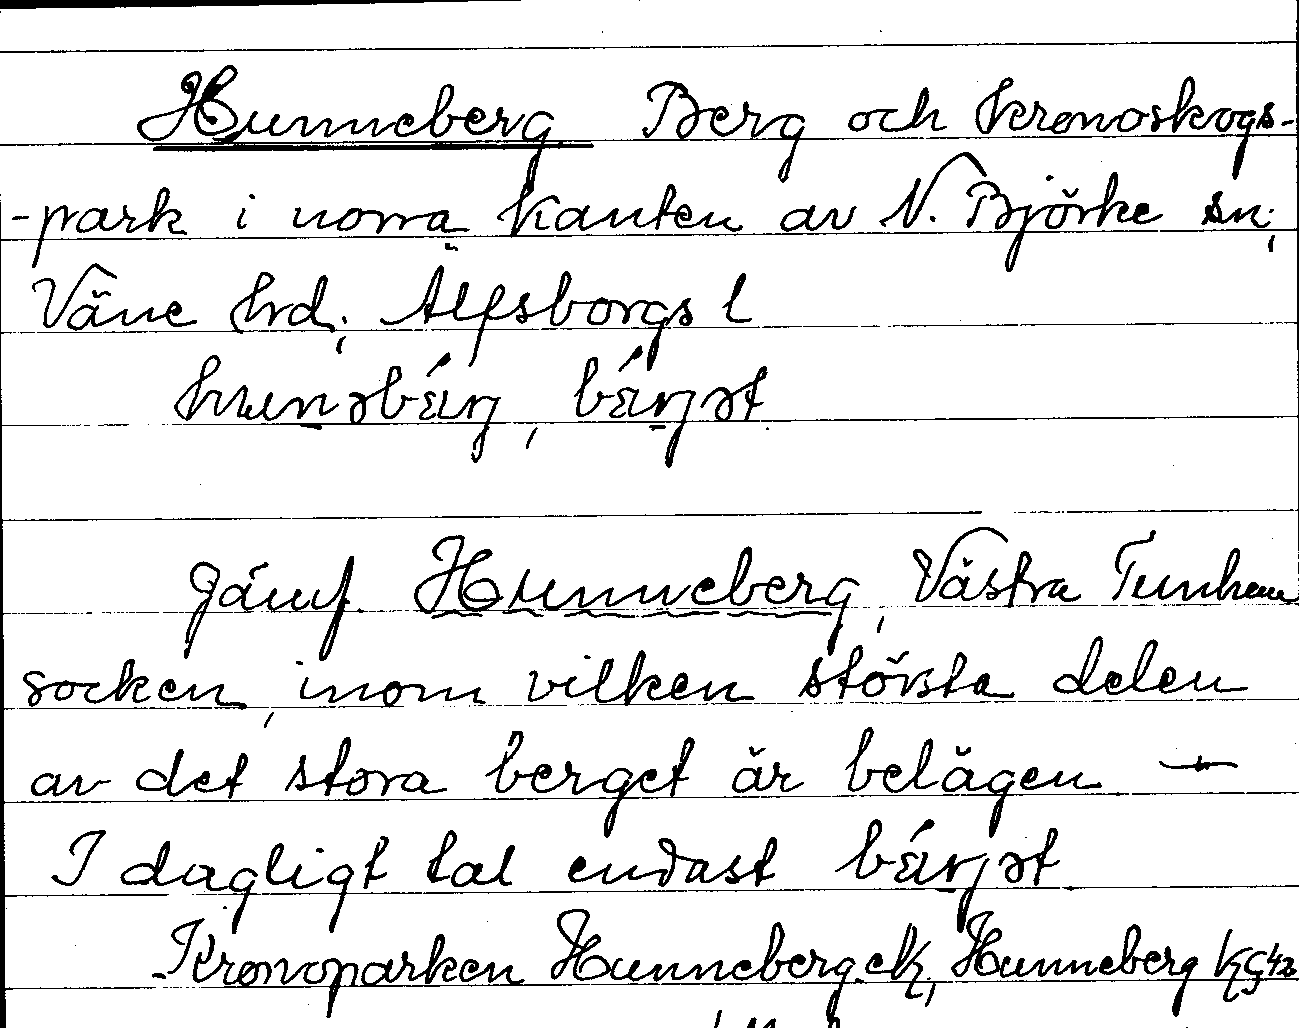 Hunneberg Berg och Kronoskogs-
-park i norra kanten av N. Björke sn;
Väne hrd; Älfsborgs l
hunəbærj, bærjət
Jämf. Hunneberg, Västra Tunhem
socken, inom vilken största delen
av det stora berget är belägen —
I dagligt tal endast bærjət
Kronoparken Hunneberg ek, Hunneberg